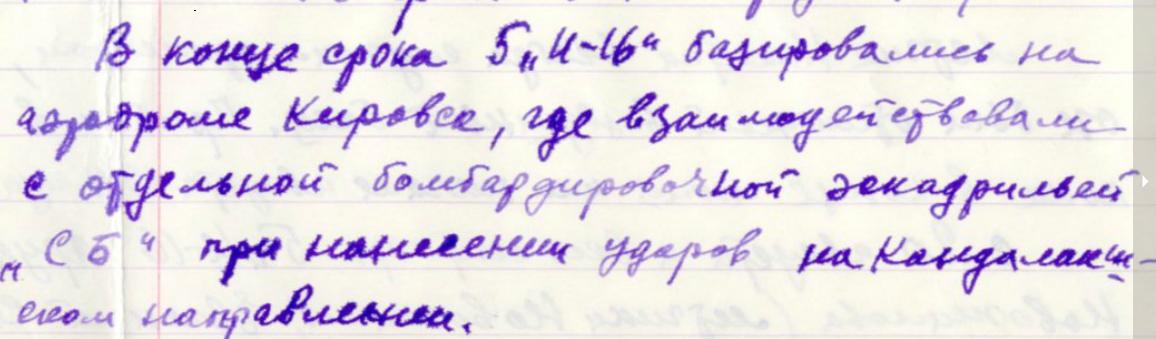 В конце срока 5 „И-16“ базировались на
аэродроме Кировск, где взаимодействовали
с отдельной бомбардировочной эскадрильей
„СБ“ при нанесении ударов на Кандалакш-
ском направлении.